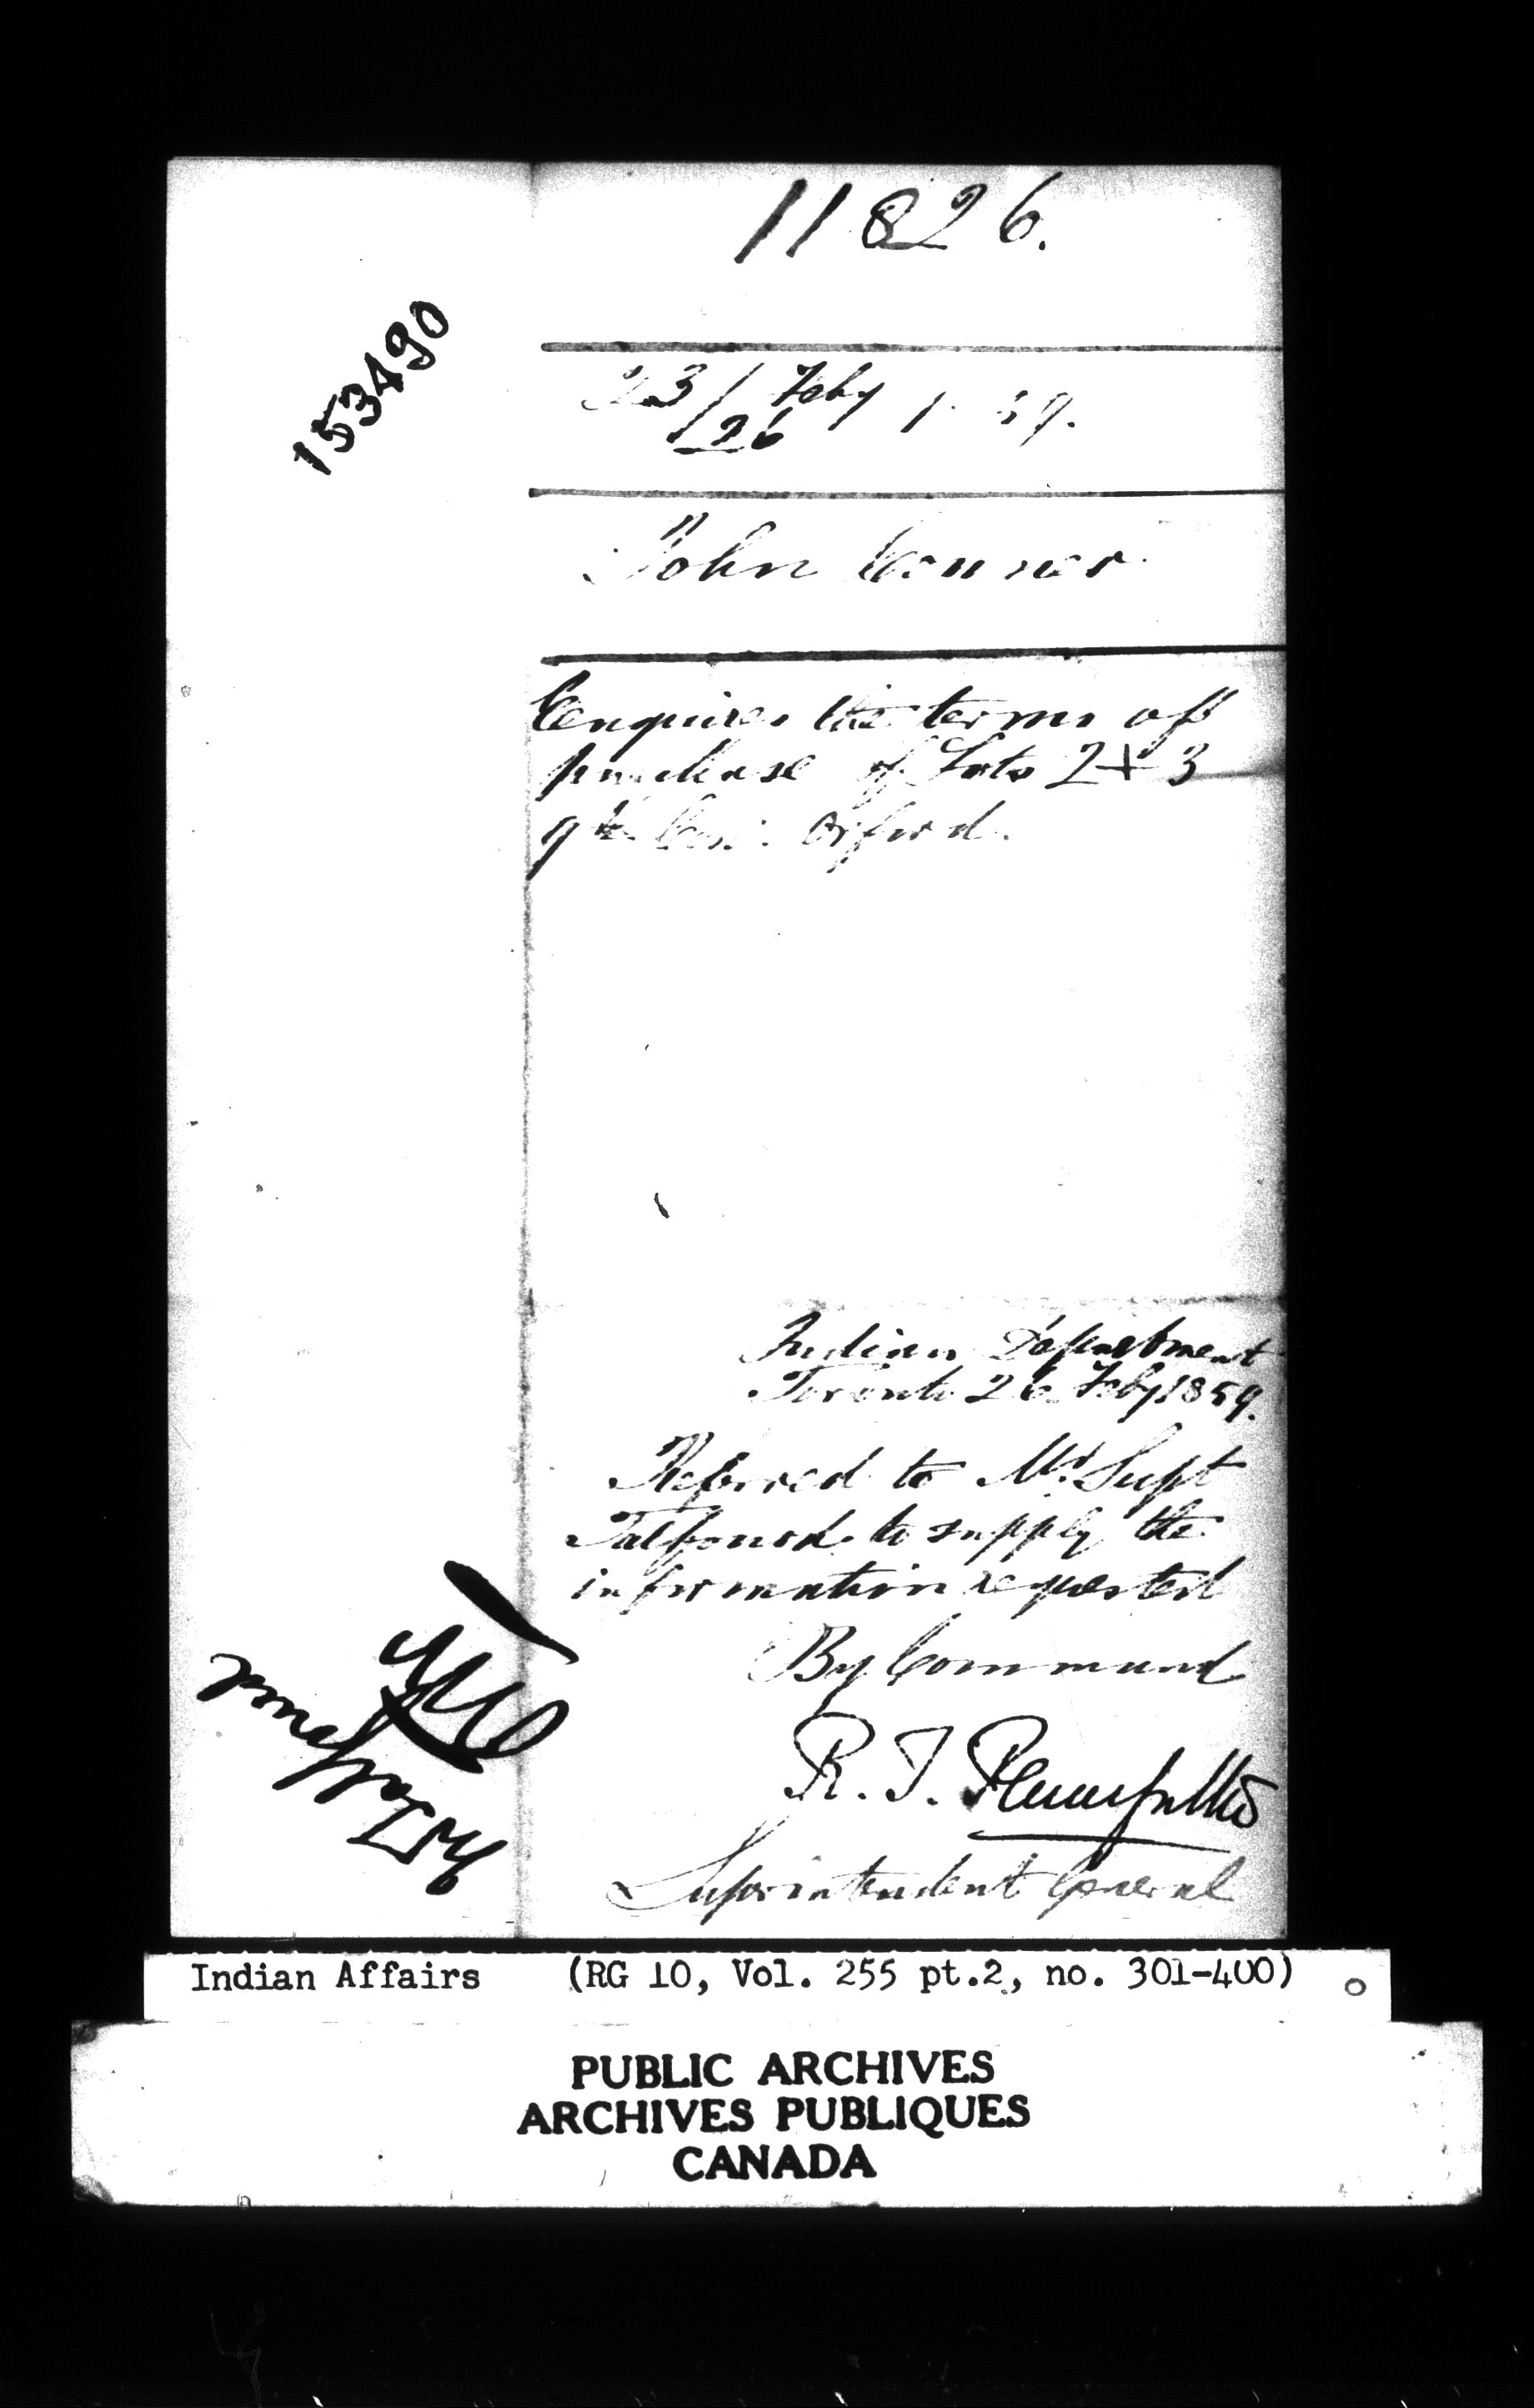 11826.
153490
23/26 Feby 1 59.
John Conner
Enquires the terms off
purchase of Lots 2 + 3
9th Con: Orford.
Indian Department
Toronto 26 Feby 1859.
Referred to Mr Supt
Talfourd to supply the
information requested
By Command
R. T. Pennefather
Superintendent General
W Talfourd
Indian Affairs (RG 10, Vol. 255 pt.2, no. 301-400)
PUBLIC ARCHIVES
ARCHIVES PUBLIQUES
CANADA